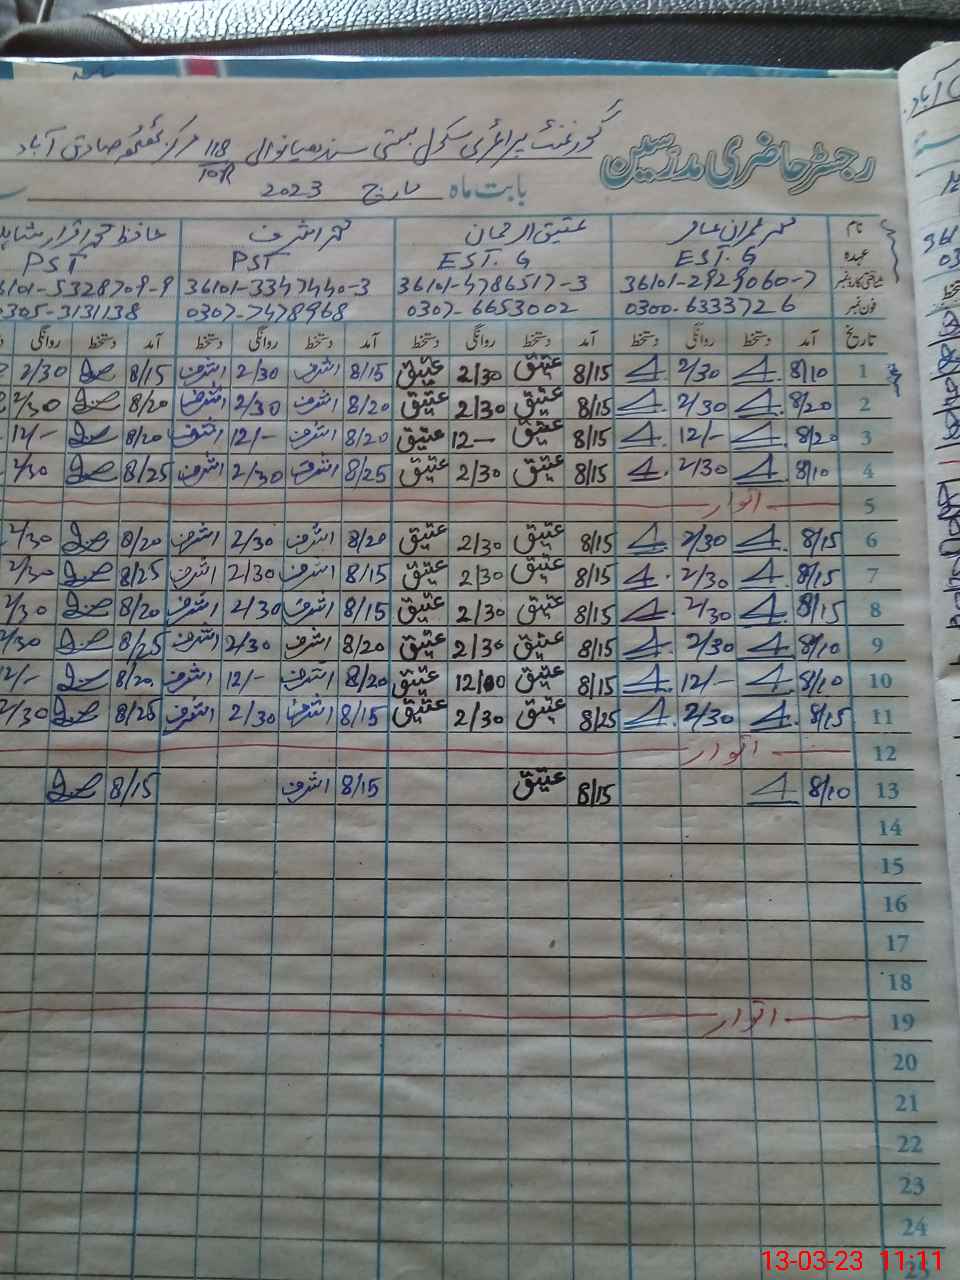 رجسٹر حاضری مدرسین
گورنمنٹ پرائمری سکول بستی سندھیانوالی 118/10R مرکز ٹھٹھہ صادق آباد
بابت ماہ مارچ 2023
نام محمد عمران عامر عتیق الرحمان محمد اشرف حافظ محمد اقرار شاہد
عہدہ EST. G EST. G PST PST
شناختی کارڈ نمبر 36101-2929060-7 36101-4786517-3 36101-3347440-3 36101-5328709-9
فون نمبر 0300-6333726 0307-6653002 0307-7478968 0305-3131138
تاریخ آمد دستخط روانگی دستخط آمد دستخط روانگی دستخط آمد دستخط روانگی دستخط آمد دستخط روانگی
1 8/10 2/30 8/15 عتیق 2/30 عتیق 8/15 اشرف 2/30 اشرف 8/15 2/30
2 8/20 2/30 8/15 عتیق 2/30 عتیق 8/20 اشرف 2/30 اشرف 8/20 2/30
3 8/20 12/- 8/15 عتیق 12- عتیق 8/20 اشرف 12/- اشرف 8/20 12/-
4 8/10 2/30 8/15 عتیق 2/30 عتیق 8/25 اشرف 2/30 اشرف 8/25 2/30
5 اتوار
6 8/15 2/30 8/15 عتیق 2/30 عتیق 8/20 اشرف 2/30 اشرف 8/20 2/30
7 8/15 2/30 8/15 عتیق 2/30 عتیق 8/15 اشرف 2/30 اشرف 8/25 2/30
8 8/15 2/30 8/15 عتیق 2/30 عتیق 8/15 اشرف 2/30 اشرف 8/20 2/30
9 8/10 2/30 8/15 عتیق 2/30 عتیق 8/20 اشرف 2/30 اشرف 8/25 2/30
10 8/10 12/- 8/15 عتیق 12/00 عتیق 8/20 اشرف 12/- اشرف 8/20 12/-
11 8/15 2/30 8/25 عتیق 2/30 عتیق 8/15 اشرف 2/30 اشرف 8/25 2/30
12 اتوار
13 8/10 8/15 عتیق 8/15 اشرف 8/15
14
15
16
17
18
19 اتوار
20
21
22
23
24
25
13-03-23 11:11